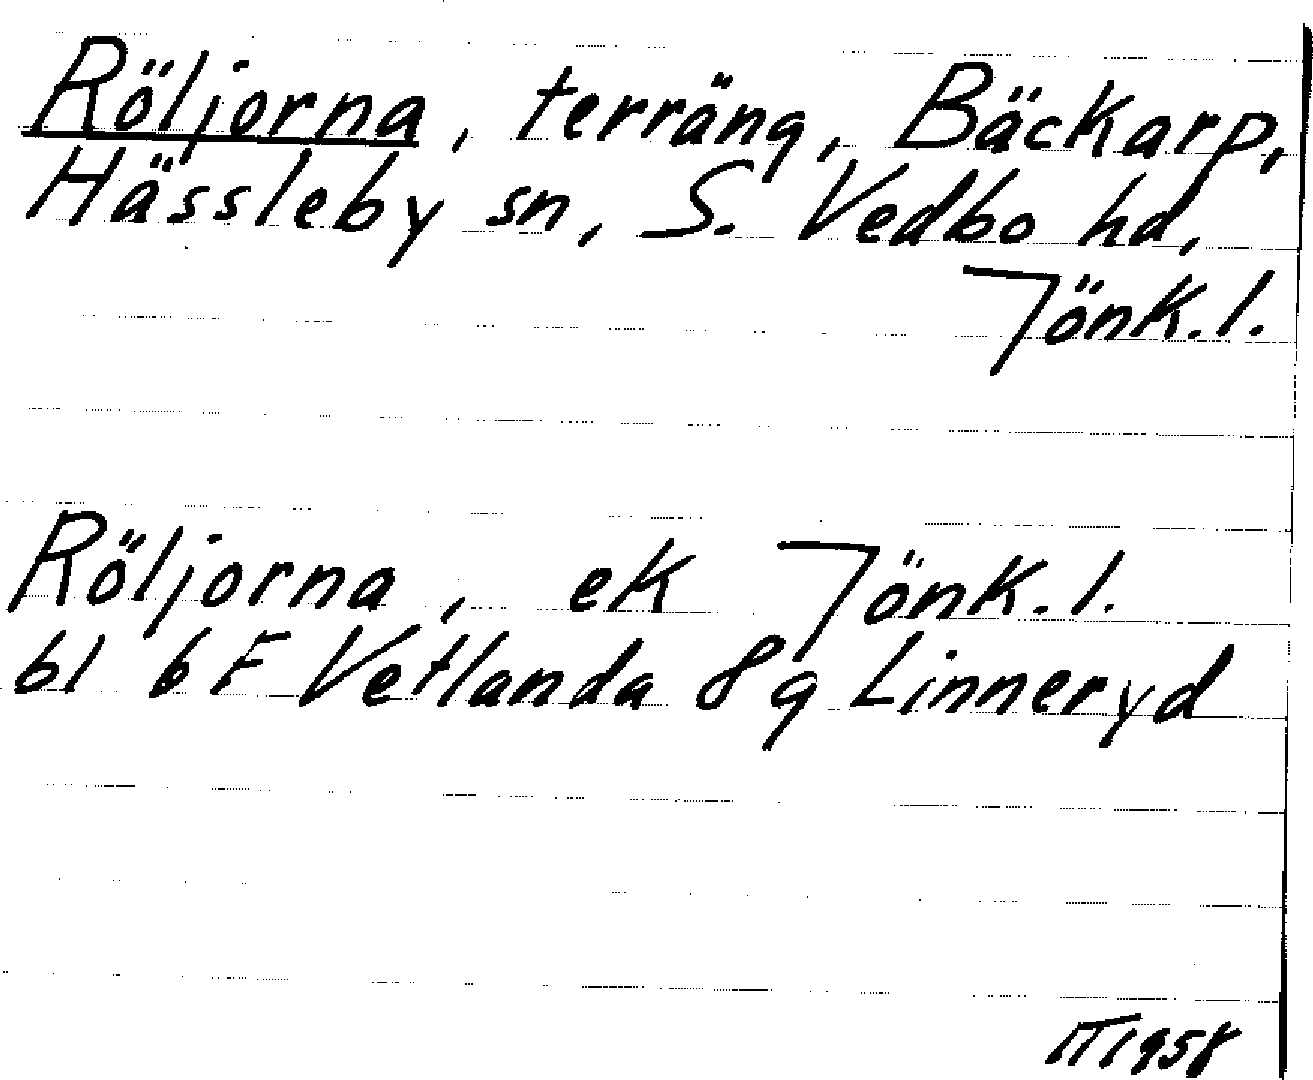 Röljorna, terräng, Bäckarp,
Hässleby sn, S. Vedbo hd,
Jönk.l.
Röljorna, ek Jönk.l.
bl 6F Vetlanda 8g Linneryd
1958